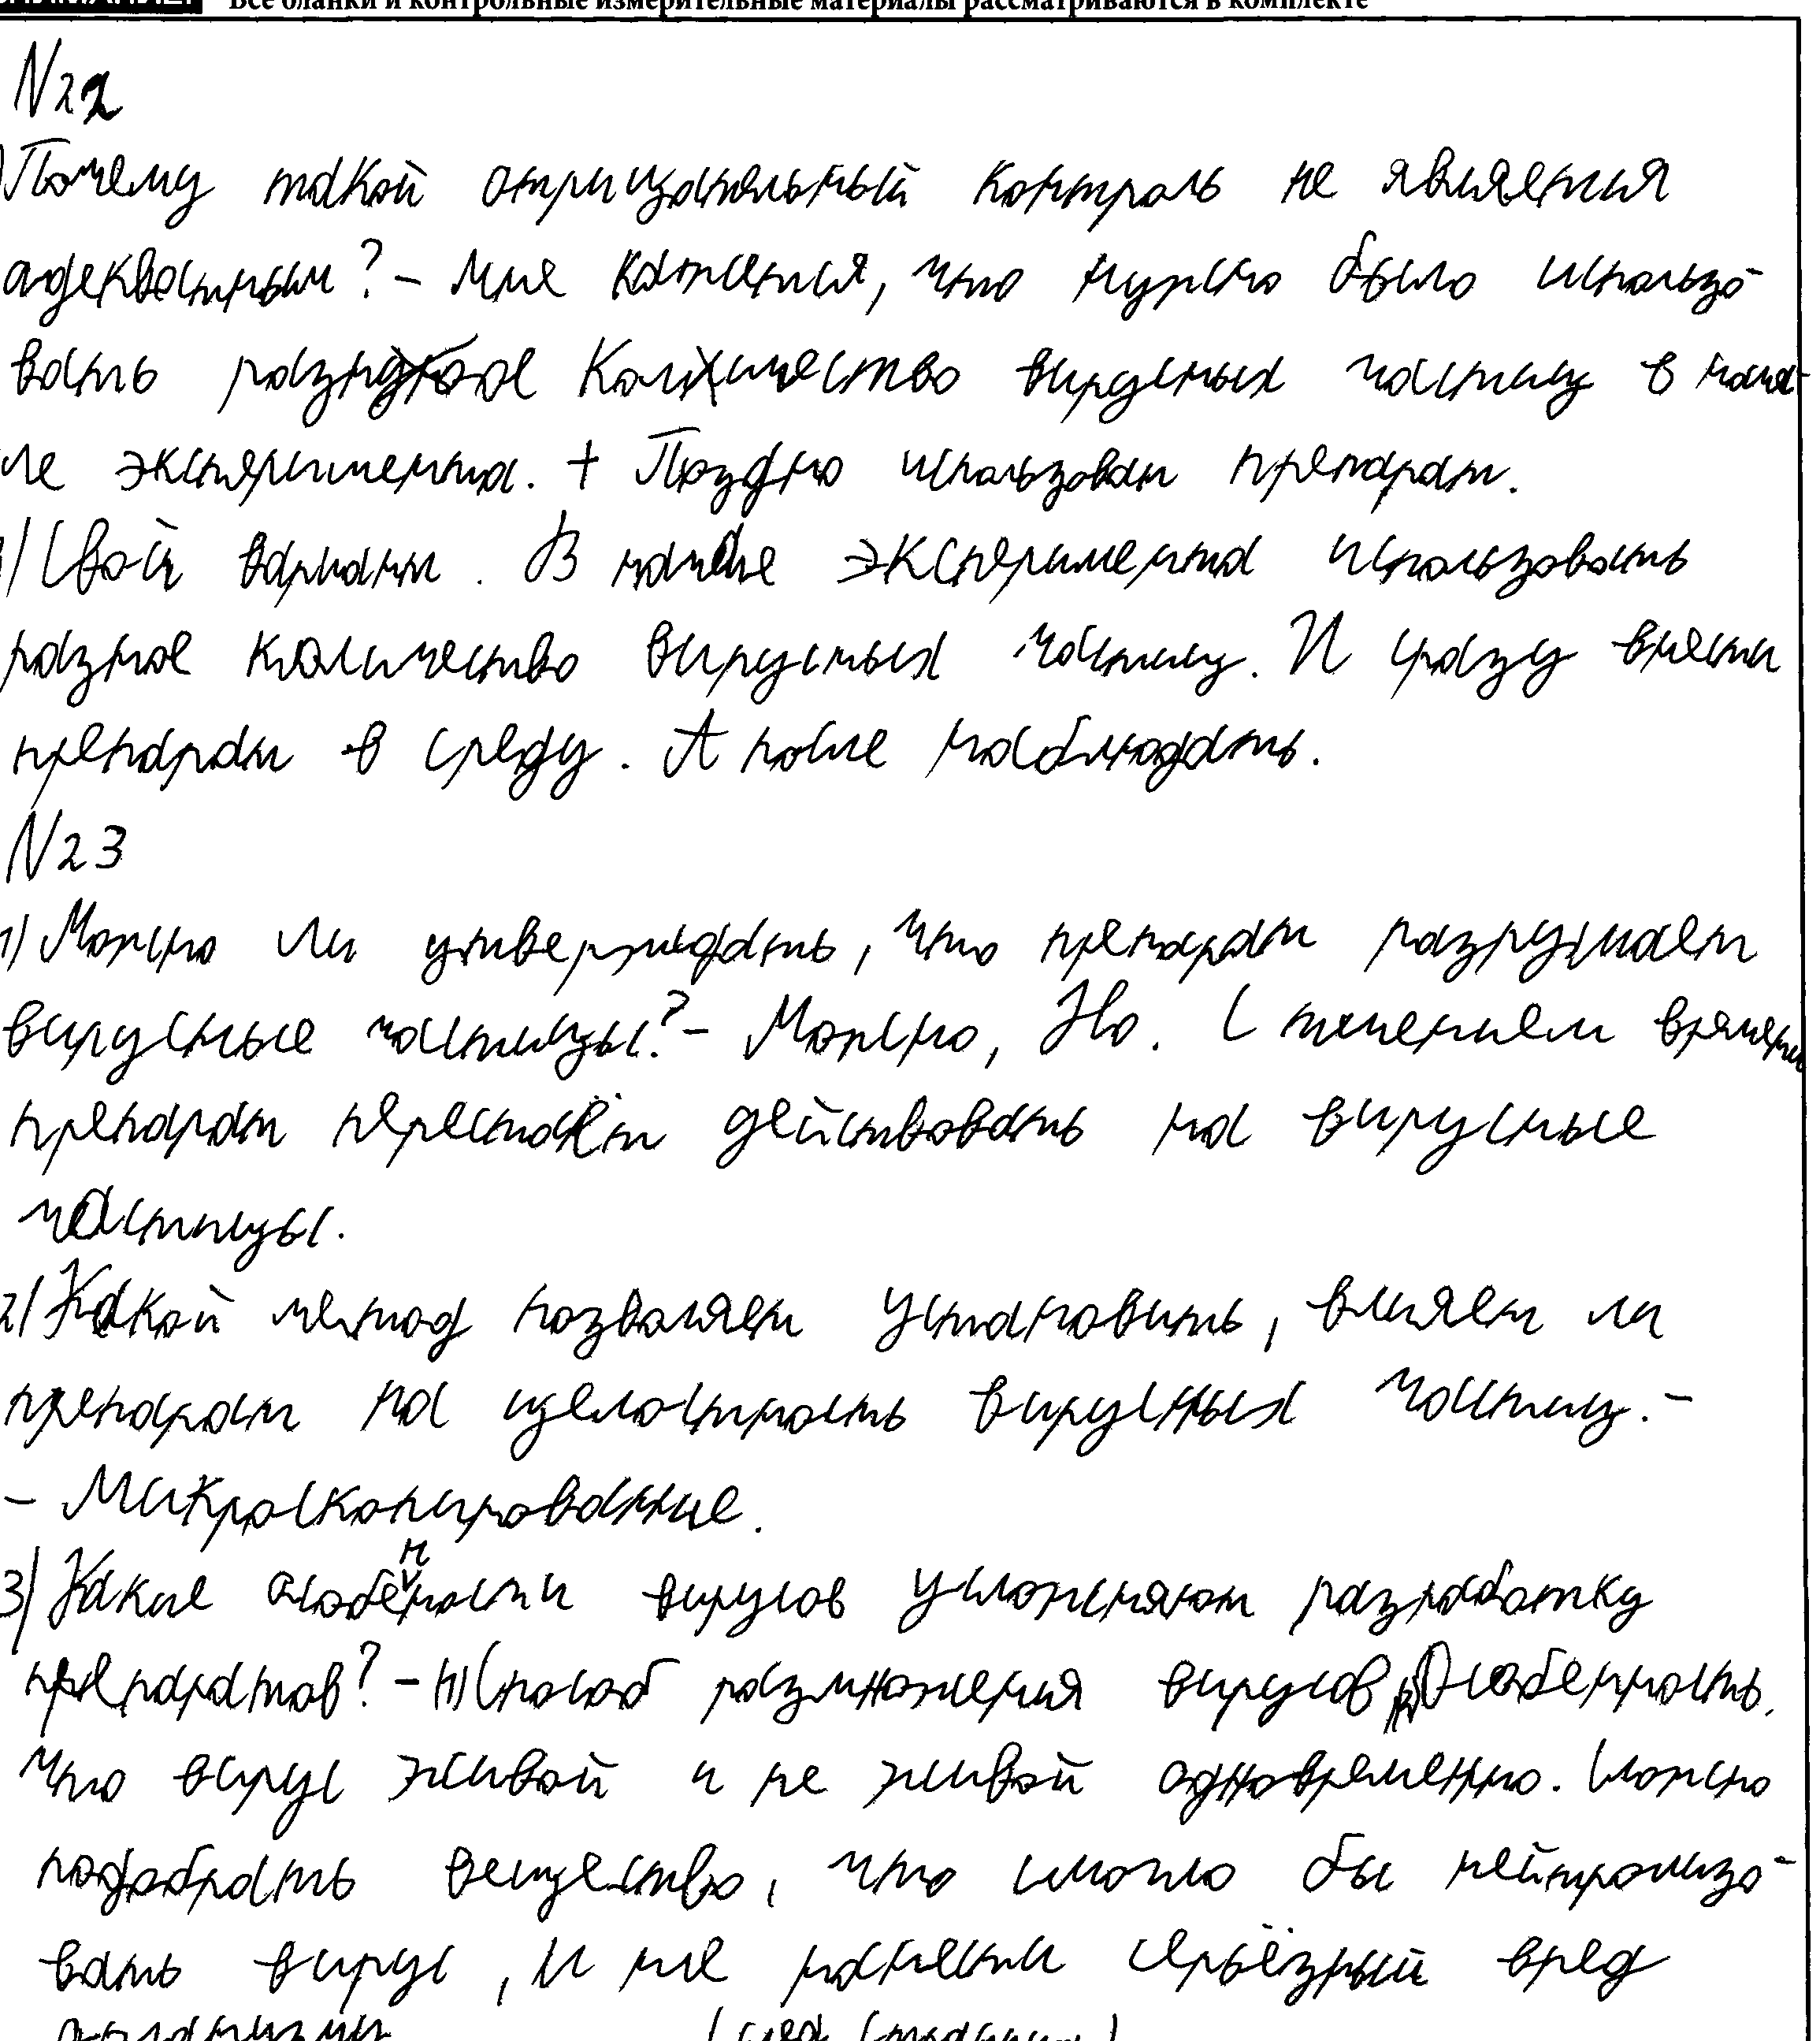 Все бланки и контрольные измерительные материалы рассматриваются в комплекте
N22
Почему такой отрицательный контроль не является
адекватным? - Мне кажется, что нужно было использо-
вать разное количество вирусных частиц в нача-
ле эксперимента. + Поздно использован препарат.
) Свой вариант. В начале эксперимента использовать
разное количество вирусных частиц. И сразу внести
препарат в среду. А после наблюдать.
N23
1) Можно ли утверждать, что препарат разрушает
вирусные частицы? - Можно, Но. С течением времени
препарат перестаёт действовать на вирусные
частицы.
2) Какой метод позволяет установить, влияет ли
препарат на целостность вирусных частиц. -
- Микроскопирование.
3) Какие особенности вирусов усложняют разработку
препаратов? - Способ размножения вирусов, Особенность,
что вирус живой и не живой одновременно. Сложно
подобрать вещество, что смогло бы нейтрализо-
вать вирус, и не нанести серьёзный вред